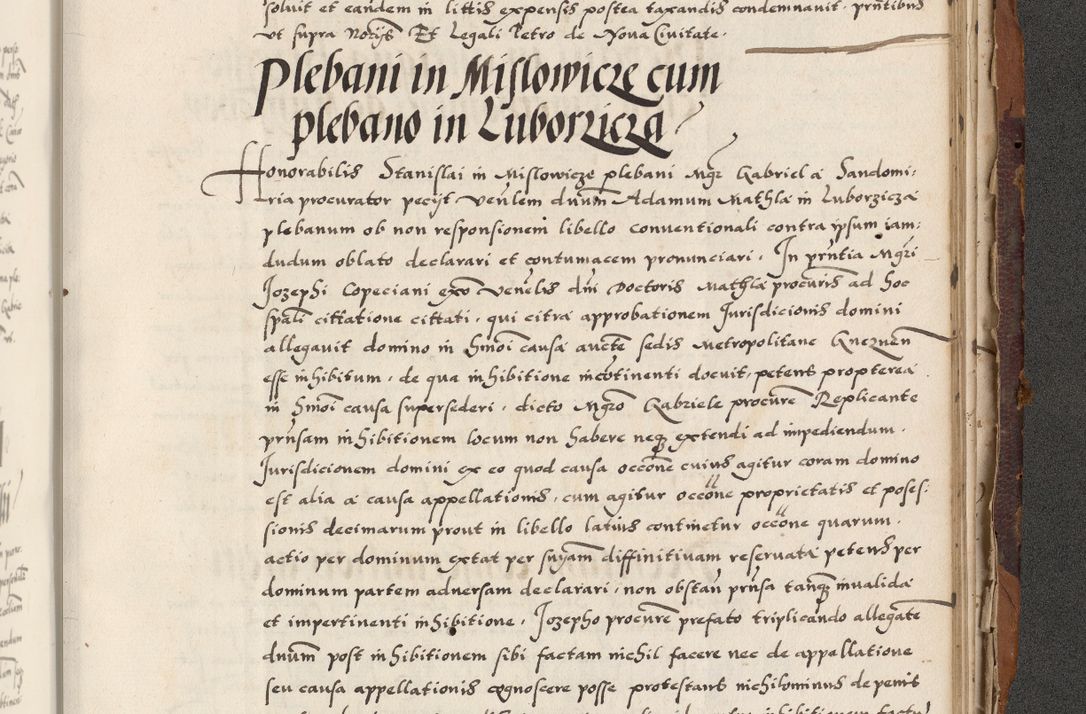 soluit et eandem in littis expensis postea taxandis condemnauit. pñtibus
vt supra Notijs Et Legali Petro de Noua Ciuitate.
Plebani in Mislowicze cum
plebano in Luborzicza
Honorabilis Stanislai in Mislowicze plebani Mgr Gabriel a Sandomi:
ria procurator pecijt venlem dnum Adamum Mathla in Luborzicza
plebanum ob non responsionem libello conventionali contra ipsum iam:
dudum oblato declarari et contumacem pronunciari. In pñtia Mgri
Jozephi Copeciani exõ venelis dñi Doctoris Mathla procuris ad hoc
spali cittatione cittati. qui citra approbationem Jurisdicionis domini
allegauit domino in hmõi causa aucte sedis Metropolitane Gneznen
esse inhibitum. de qua inhibitione incõtinenti docuit, petens propterea
in hmõi causa supersederi. dicto Mgrõ Gabriele procure Replicante
prñsam inhibitionem locum non habere neqz extendi ad impediendum.
Jurisdicionem domini ex eo quod causa occõne cuius agitur coram domino
est alia a causa appellationis. cum agitur occõne proprietatis et poses:
sionis decimarum prout in libello latius continetur occõne quarum.
actio per dominum extat per suam diffinitiuam reseruata petens per
dominum partem aduersam declarari. non obstan prñsa tanqz inualida
et impertinenti inhibitione. Jozepho procure prefato triplicando allegate
dnum post inhibitionem sibi factam nichil facere nec de appallatione
seu causa appellationis cognoscere posse protestans nichilominus de penis